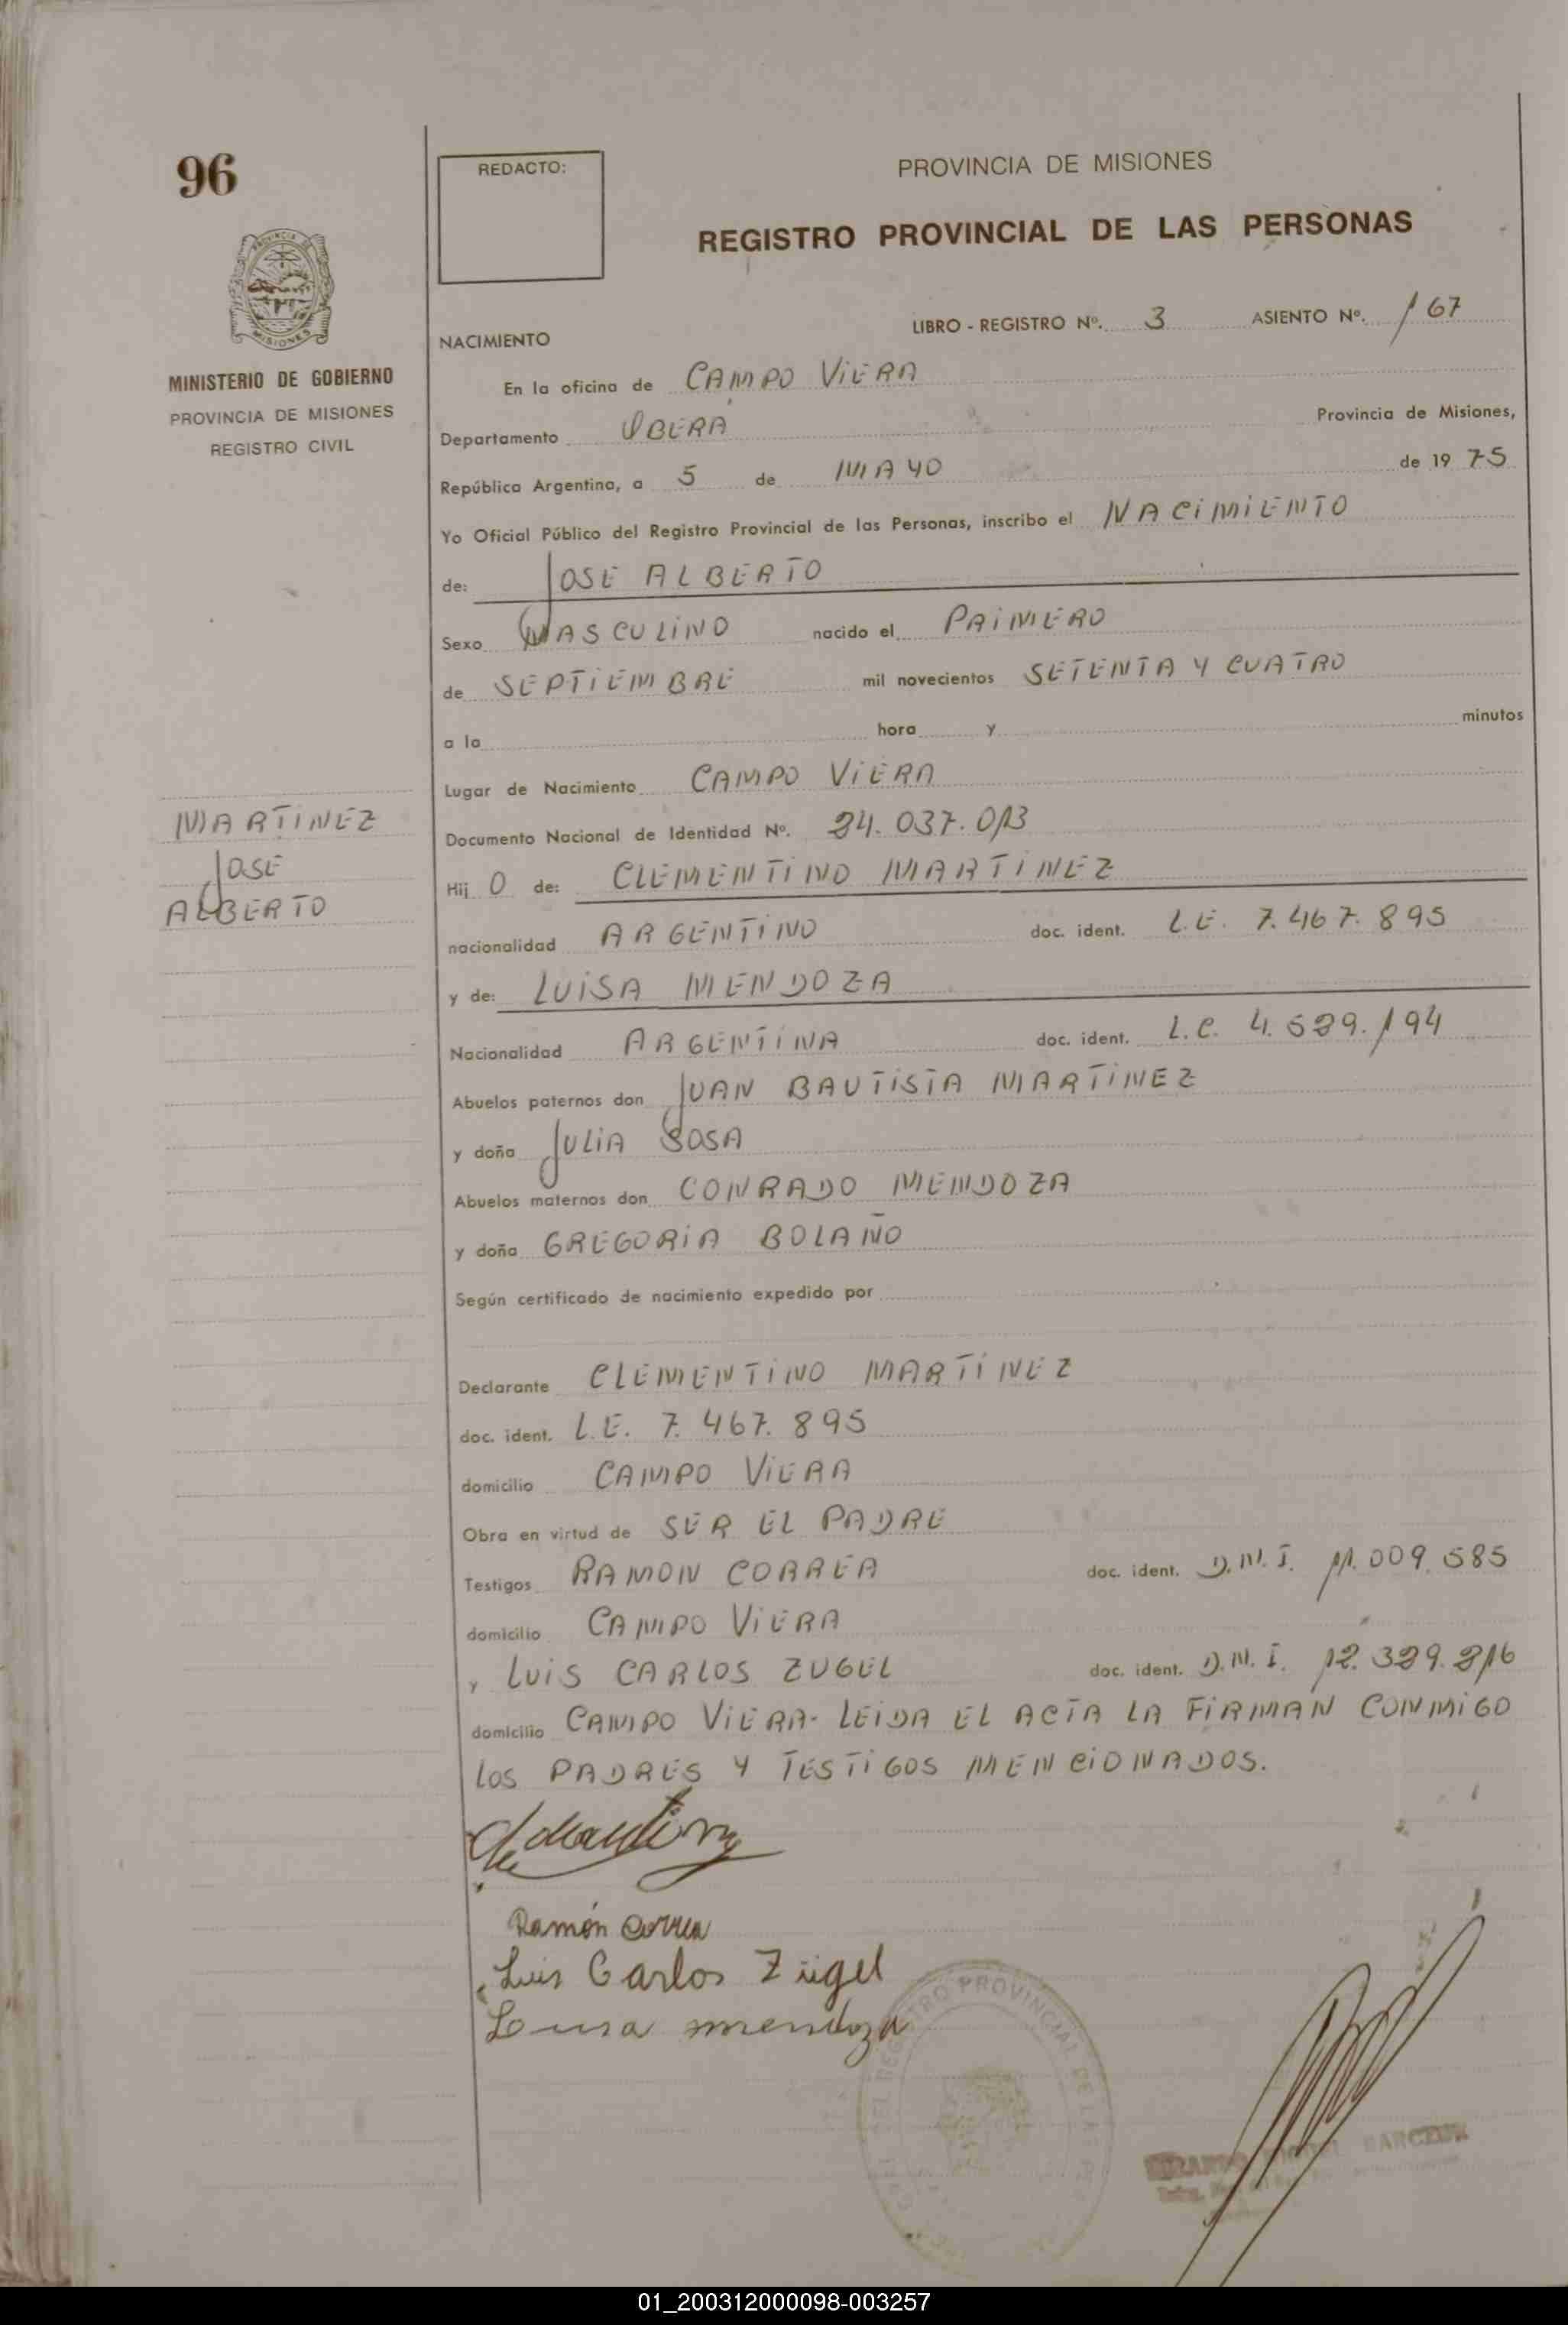 96
PROVINCIA DE MISIONES
MINISTERIO DE GOBIERNO
PROVINCIA DE MISIONES
REGISTRO CIVIL
MARTINEZ
JOSE
ALBERTO
REDACTO:
PROVINCIA DE MISIONES
REGISTRO PROVINCIAL DE LAS PERSONAS
LIBRO - REGISTRO Nº. 3 ASIENTO Nº. 167
NACIMIENTO
En la oficina de CAMPO VIERA
Departamento OBERA Provincia de Misiones,
República Argentina, a 5 de MAYO de 1975
Yo Oficial Público del Registro Provincial de las Personas, inscribo el NACIMIENTO
de: JOSE ALBERTO
Sexo MASCULINO nacido el PRIMERO
de SEPTIEMBRE mil novecientos SETENTA Y CUATRO
a la hora y minutos
Lugar de Nacimiento CAMPO VIERA
Documento Nacional de Identidad Nº. 24.037.013
Hij O de: CLEMENTINO MARTINEZ
nacionalidad ARGENTINO doc. ident. L.E. 7.467.895
y de: LUISA MENDOZA
Nacionalidad ARGENTINA doc. ident. L.C. 4.529.194
Abuelos paternos don JUAN BAUTISTA MARTINEZ
y doña JULIA SOSA
Abuelos maternos don CONRADO MENDOZA
y doña GREGORIA BOLAÑO
Según certificado de nacimiento expedido por
Declarante CLEMENTINO MARTINEZ
doc. ident. L.E. 7.467.895
domicilio CAMPO VIERA
Obra en virtud de SER EL PADRE
Testigos RAMON CORREA doc. ident. D.N.I. 11.009.585
domicilio CAMPO VIERA
y LUIS CARLOS ZUGEL doc. ident. D.N.I. 12.329.216
domicilio CAMPO VIERA- LEIDA EL ACTA LA FIRMAN CONMIGO
LOS PADRES Y TESTIGOS MENCIONADOS.
Ramón Correa
Luis Carlos Zügel
Luisa mendoza
DEL REGISTRO PROVINCIAL DE LAS
01_200312000098-003257